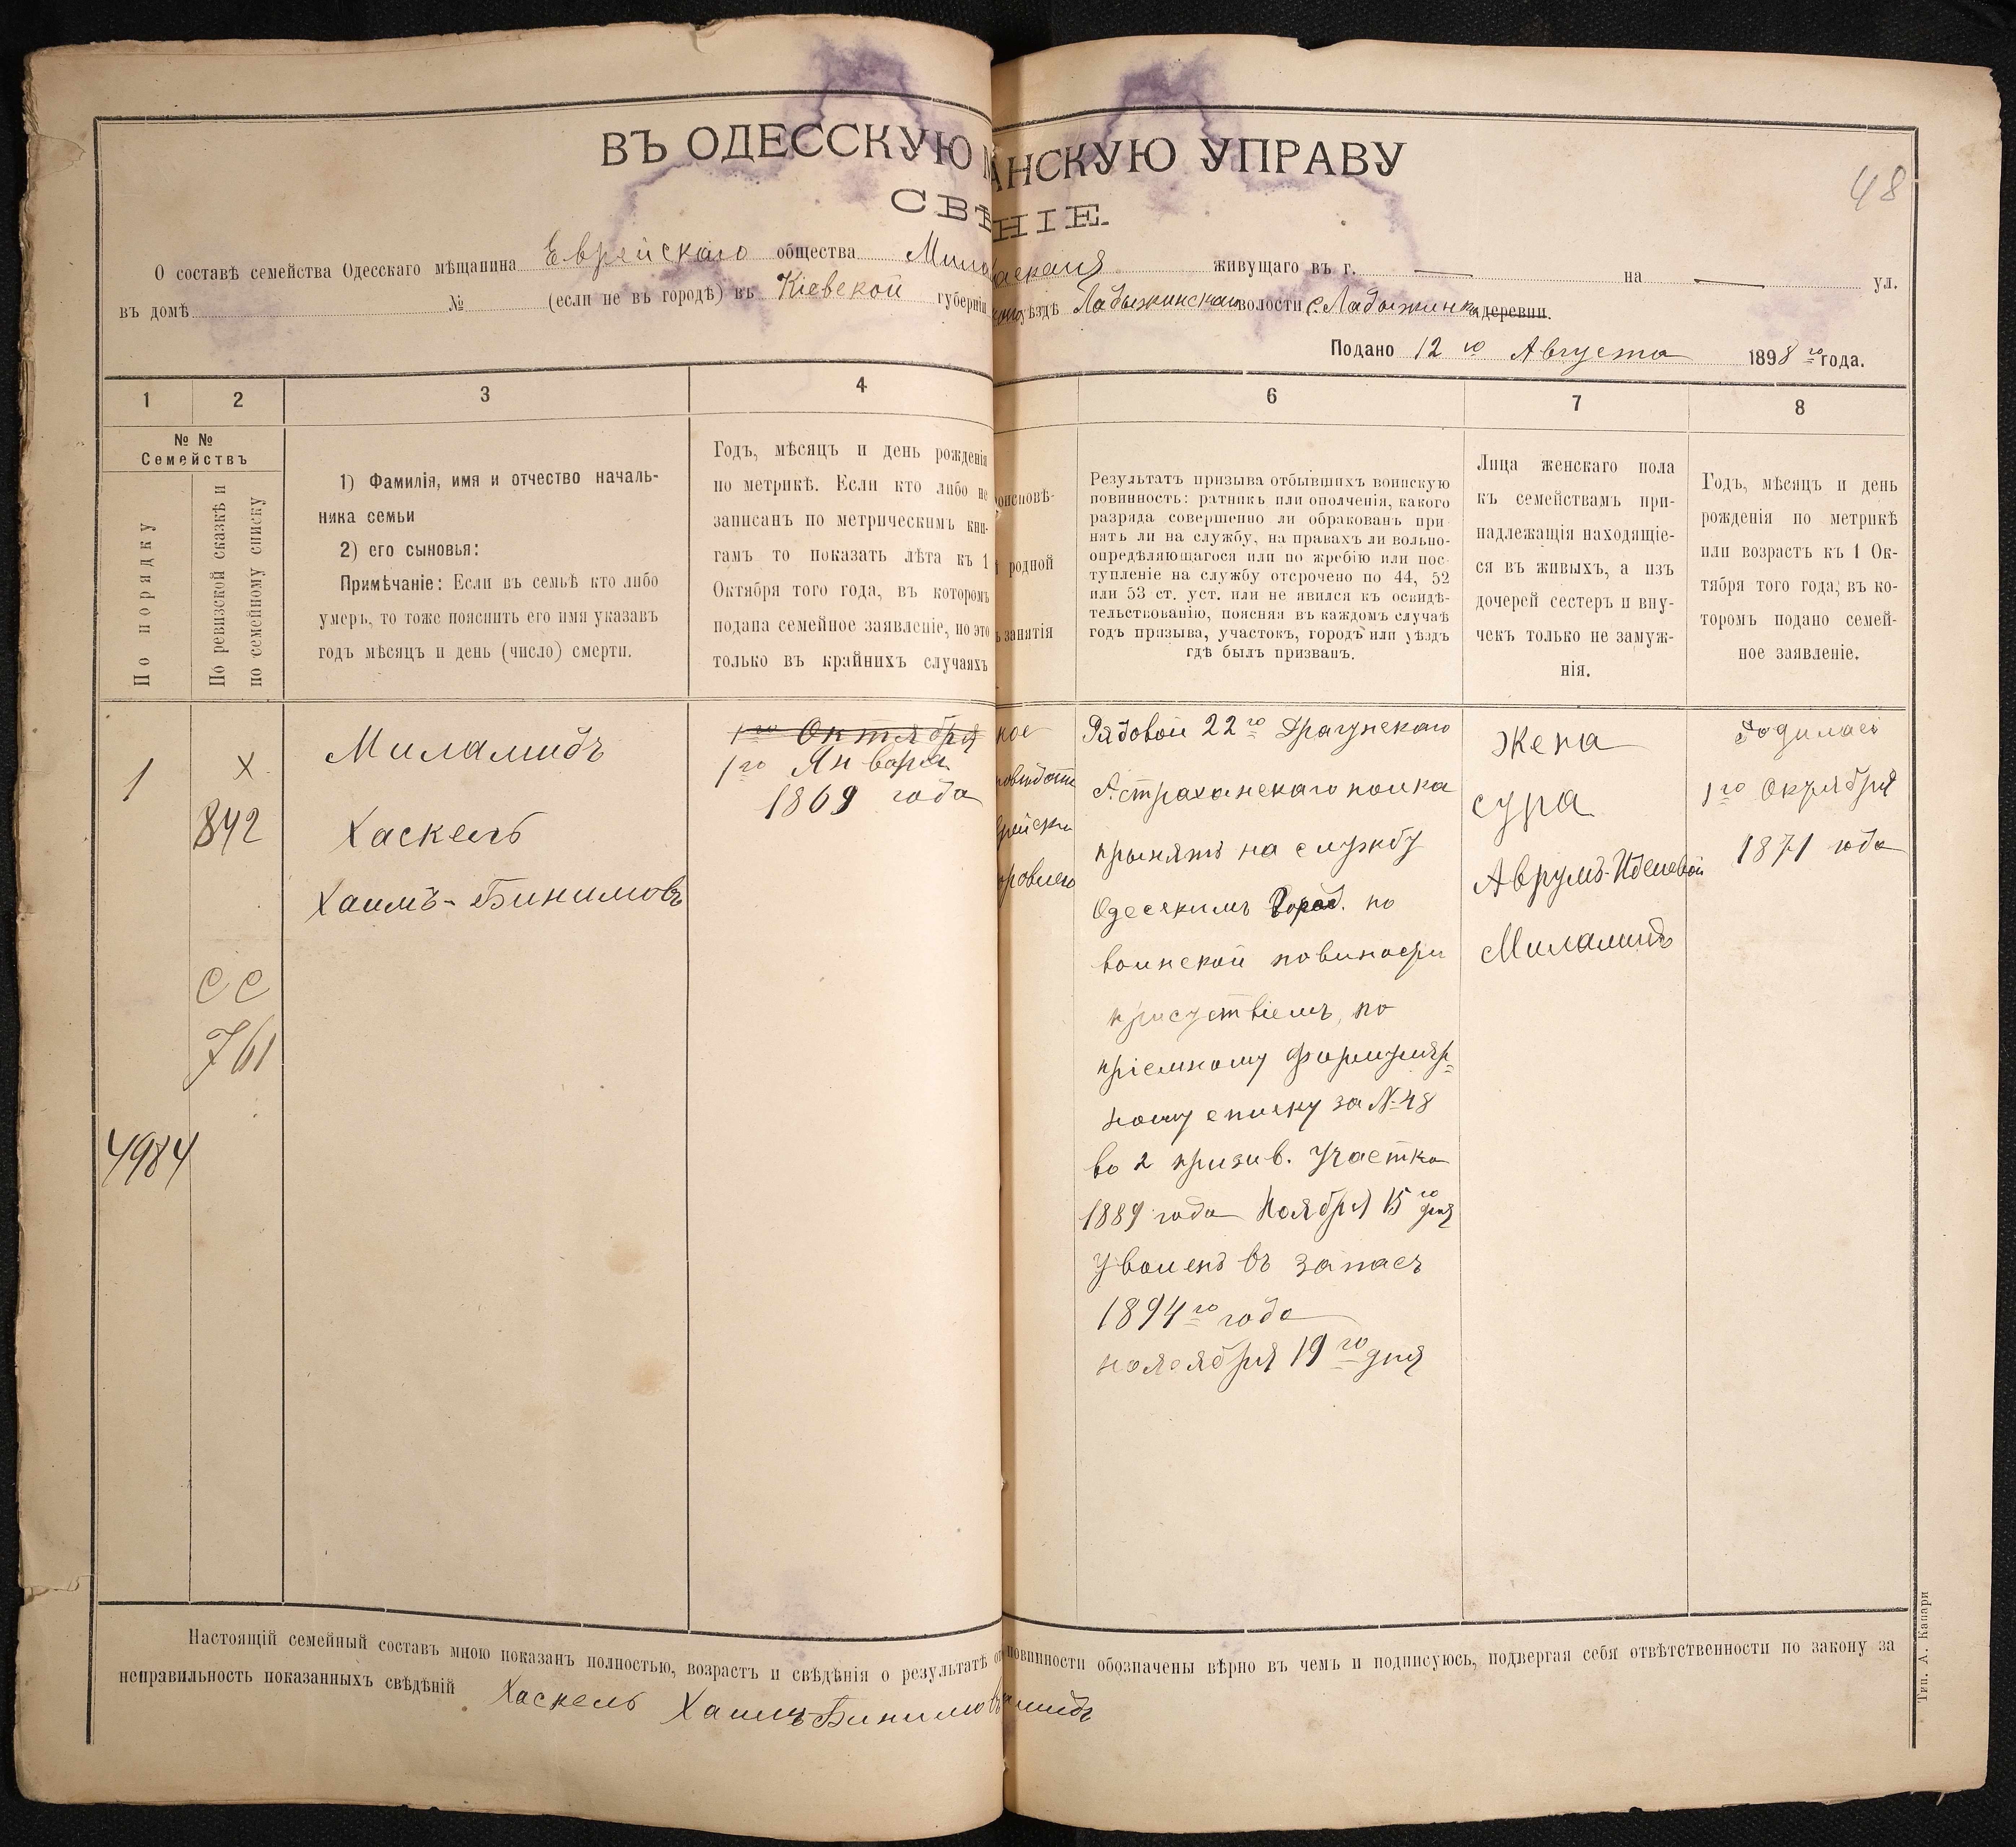 ВЪ ОДЕССКУЮ АНСКУЮ УПРАВУ
СВѢ НІЕ.
48
О составѣ семейства Одесскаго мѣщанина Еврейскаго общества живущаго въ г. — на — ул.
въ домѣ № (если не въ городѣ) въ Кіевской губерніи уѣздѣ Ладыжинской волости с. Ладыжинка деревни.
Подано 12го Августа 1898го года.
1 2 3 4 6 7 8
№ №
Семействъ
По порядку
По ревизской сказкѣ и
по семейному списку
1) Фамилія, имя и отчество началь-
ника семьи
2) его сыновья:
Примѣчаніе: Если въ семьѣ кто либо
умеръ, то тоже пояснить его имя указавъ
годъ мѣсяцъ и день (число) смерти.
Годъ, мѣсяцъ и день рожденія
по метрикѣ. Если кто либо не
записанъ по метрическимъ кни-
гамъ то показать лѣта къ 1
Октября того года, въ которомъ
подана семейное заявленіе, но это
только въ крайнихъ случаяхъ
роисповѣ-
родной
занятія
Результатъ призыва отбывшихъ воинскую
повинность: ратникъ или ополченія, какого
разряда совершенно ли обракованъ при
нятъ ли на службу, на правахъ ли вольно-
опредѣляющагося или по жребію или пос-
тупленіе на службу отсрочено по 44, 52
или 53 ст. уст. или не явился къ освидѣ-
тельствованію, поясняя въ каждомъ случаѣ
годъ призыва, участокъ, городъ или уѣздъ
гдѣ былъ призванъ.
Лица женскаго пола
къ семействамъ при-
надлежащія находящіе-
ся въ живыхъ, а изъ
дочерей сестеръ и вну-
чекъ только не замуж-
нія.
Годъ, мѣсяцъ и день
рожденія по метрикѣ
или возрастъ къ 1 Ок-
тября того года, въ ко-
торомъ подано семей-
ное заявленіе.
1
х
842
СС
761
4984
Миламидъ
Хаскель
Хаимъ-Бинимовъ
1го Октября
1го Января
1869 года
ное
Рядовой 22го Драгунскаго
Астраханскаго полка
прынятъ на службу
Одесскимъ Город. по
воинской повиности
присуствіемъ, по
пріемному формуляр-
ному списку за № 48
во 2 призив. участка
1889 года Ноября 15го дня
Уволенъ въ запасъ
1894го года
ноября 19го дня
Жена
Сура
Аврумъ-Иделевой
Миламидъ
Родилась
1го Октября
1871 года
Настоящій семейный составъ мною показанъ полностью, возрастъ и свѣдѣнія о результатѣ от повинности обозначены вѣрно въ чемъ и подписуюсь, подвергая себя отвѣтственности по закону за
неправильность показанныхъ свѣдѣній Хаскель Хаимъ-Бинимовъ
Тип. А. Капари